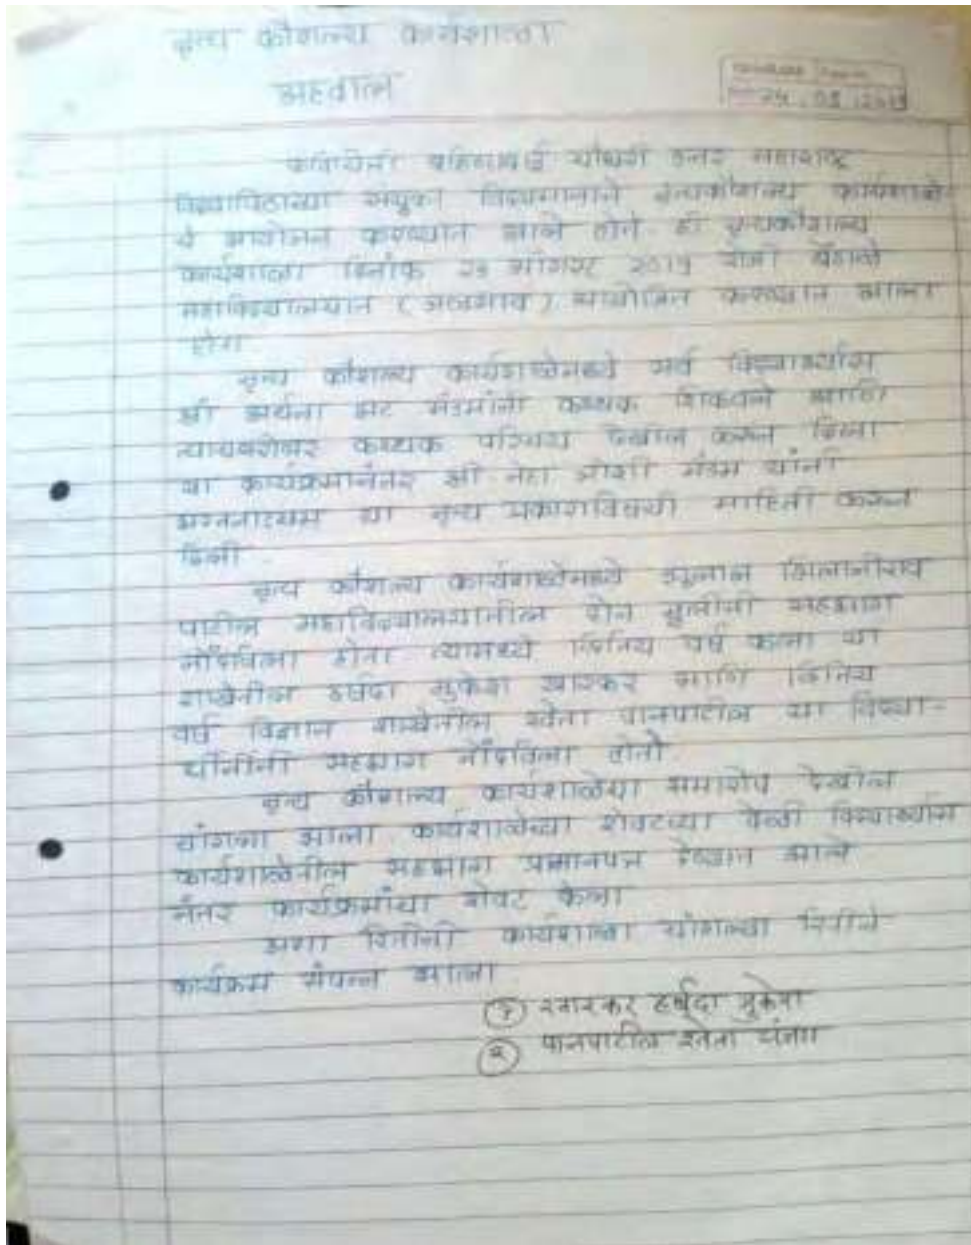 नृत्य कौशल्य कार्यशाळा
अहवाल
कवयित्री बहिणाबाई चौधरी उत्तर महाराष्ट्र
विद्यापिठाच्या संयुक्त विद्यमानाने नृत्यकौशल्य कार्यशाळे-
चे आयोजन करण्यात आले होते. ही नृत्यकौशल्य
कार्यशाळा दिनांक ऑगस्ट 2019 रोजी बेंडाळे
महाविद्यालयात (जळगाव) आयोजित करण्यात आला
होता
नृत्य कौशल्य कार्यशाळेमध्ये सर्व विद्यार्थ्यांस
श्री अर्चना भट मॅडमांनी कथ्थक शिकवले आणि
त्याचबरोबर कथ्थक परिचय देखील करून दिला
या कार्यक्रमानंतर श्री नेहा जोशी मॅडम यांनी
भरतनाट्यम या नृत्य प्रकाराविषयी माहिती करून
दिली
नृत्य कौशल्य कार्यशाळेमध्ये
पाटील महाविद्यालयातील दोन मुलींनी सहभाग
नोंदविला होता त्यामध्ये द्वितिय वर्ष कला या
शाखेतील हर्षदा मुकेश खारकर आणि द्वितिय
वर्ष विज्ञान शाखेतील श्वेता पानपाटील या विद्या-
र्थीनींनी सहभाग नोंदविला होतो
नृत्य कौशल्य कार्यशाळेचा समारोप देखील
चांगला झाला. कार्यशाळेच्या शेवटच्या वेळी विद्यार्थ्यांस
कार्यशाळेतील सहभाग प्रमानपत्र देण्यात आले
नंतर कार्यक्रमाचा शेवट केला
अशा रितीनी कार्यशाळा चांगल्या रितीने
कार्यक्रम संपन्न झाला.
① खारकर हर्षदा मुकेश
② पानपाटील श्वेता